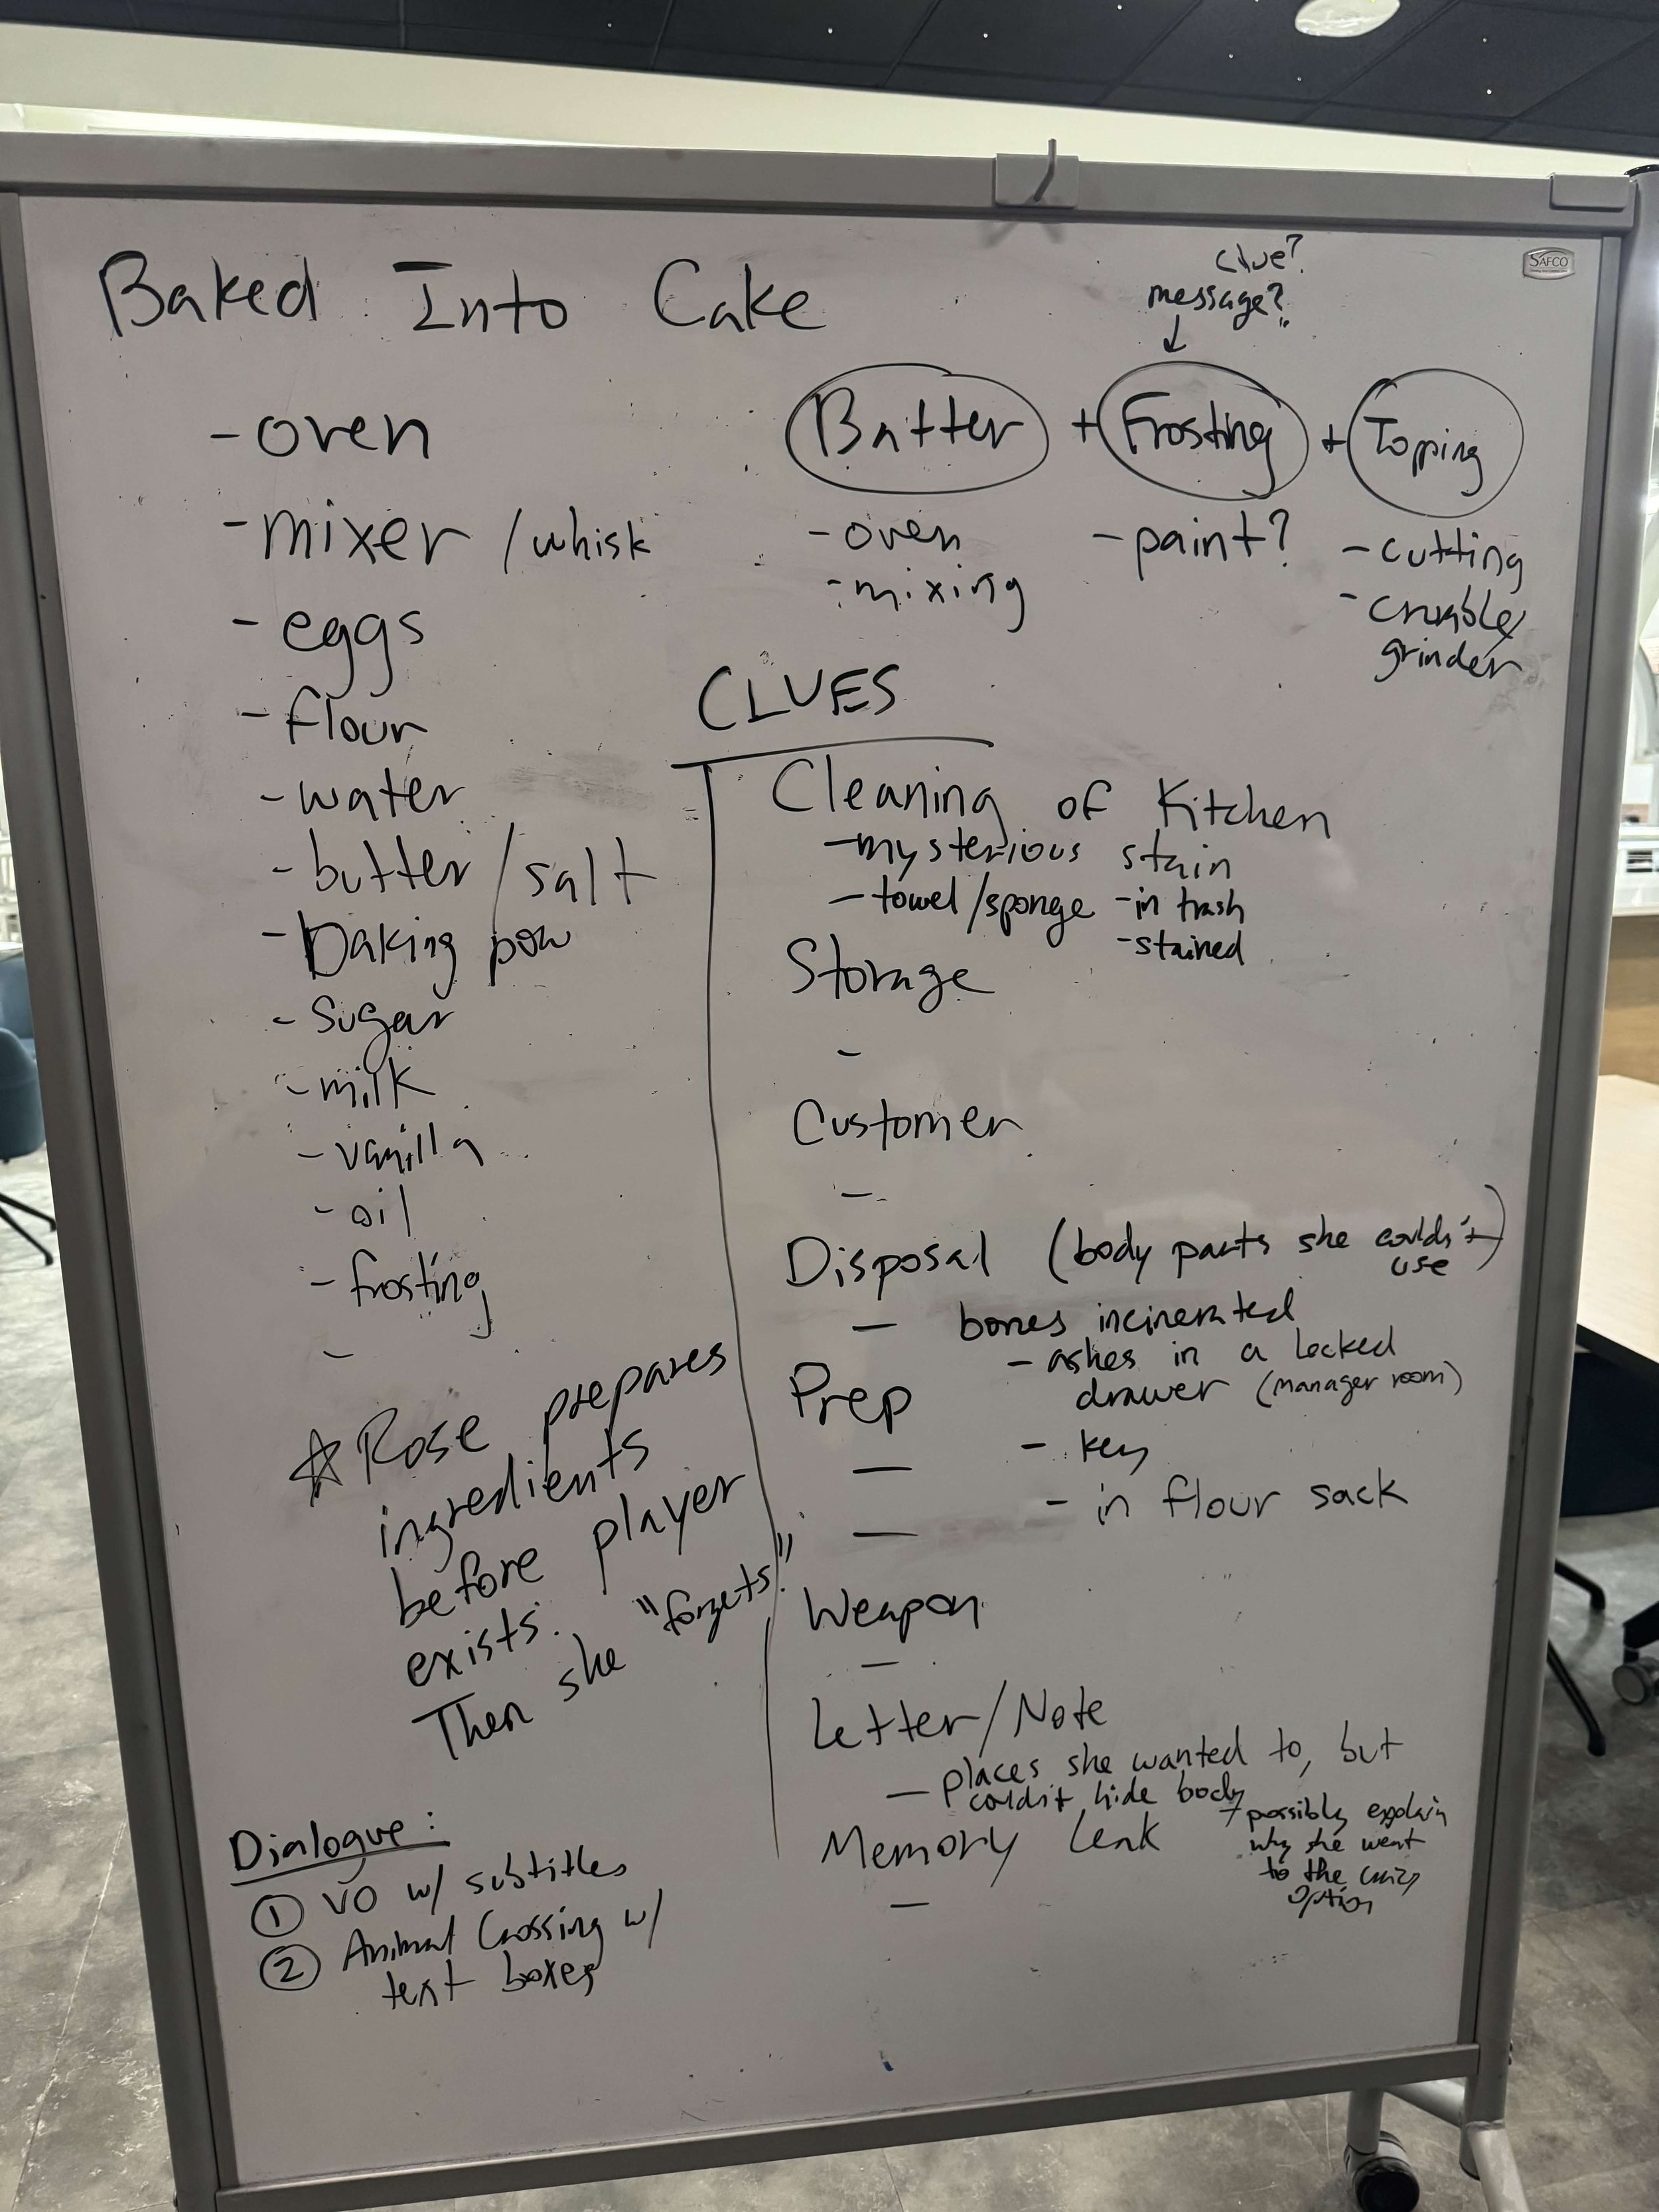 Baked Into Cake
clue?
message?
SAFCO
Batter + Frosting + Topping
- oven
- mixing
- paint?
- cutting
- crumble/
grinder
- oven
- mixer / whisk
- eggs
- flour
- water
- butter / salt
- Baking pow
- Sugar
- milk
- vanilla
- oil
- frosting
-
☆ Rose prepares
ingredients
before player
exists.
Then she "forgets."
Dialogue:
① VO w/ subtitles
② Animal Crossing w/
text boxes
CLUES
Cleaning of Kitchen
- mysterious stain
- towel/sponge - in trash
- stained
Storage
-
Customer
-
Disposal (body parts she couldn't
use)
- bones incinerated
- ashes in a locked
drawer (manager room)
- key
- in flour sack
Prep
-
-
Weapon
-
Letter/Note
- places she wanted to, but
couldn't hide body
→ possibly explain
why she went
to the crazy
option
Memory Leak
-